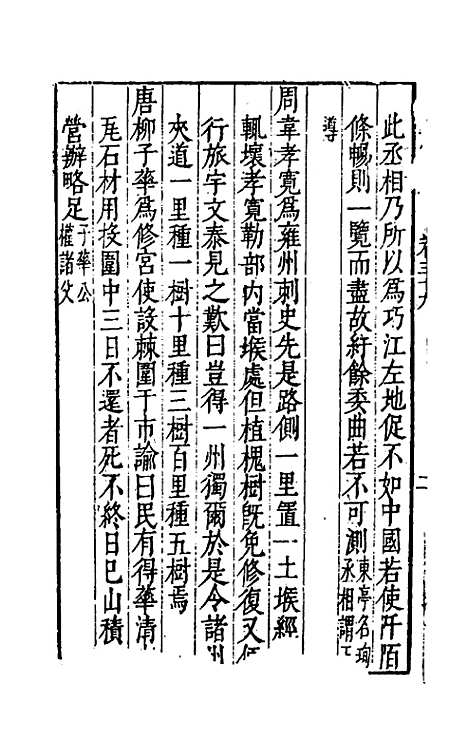 此丞相乃所以爲巧江左地促不如中國若使阡陌
條暢則一覽而盡故紆餘委曲若不可測東亭名珣丞相謂王
導
周韋孝寬爲雍州刺史先是路側一里置一土堠經
輒壞孝寬勒部内當堠處但植槐樹旣免修復又
行旅宇文泰見之歎曰豈得一州獨爾於是令諸州
夾道一里種一樹十里種三樹百里種五樹焉
唐柳子華爲修宮使設棘圍于市諭曰民有得華清
瓦石材用投圍中三日不還者死不終日已山積
營辦略足子華公權諸父
卷三十九